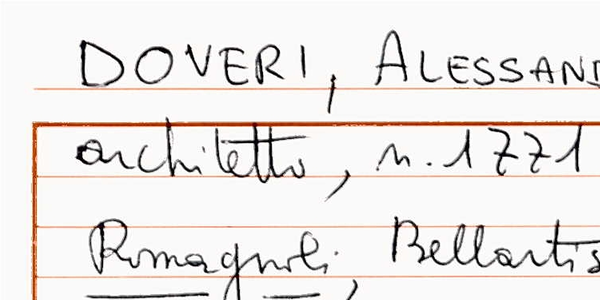 DOVERI, ALESSAND
architetto, n. 1771
Romagnoli, Bellartis